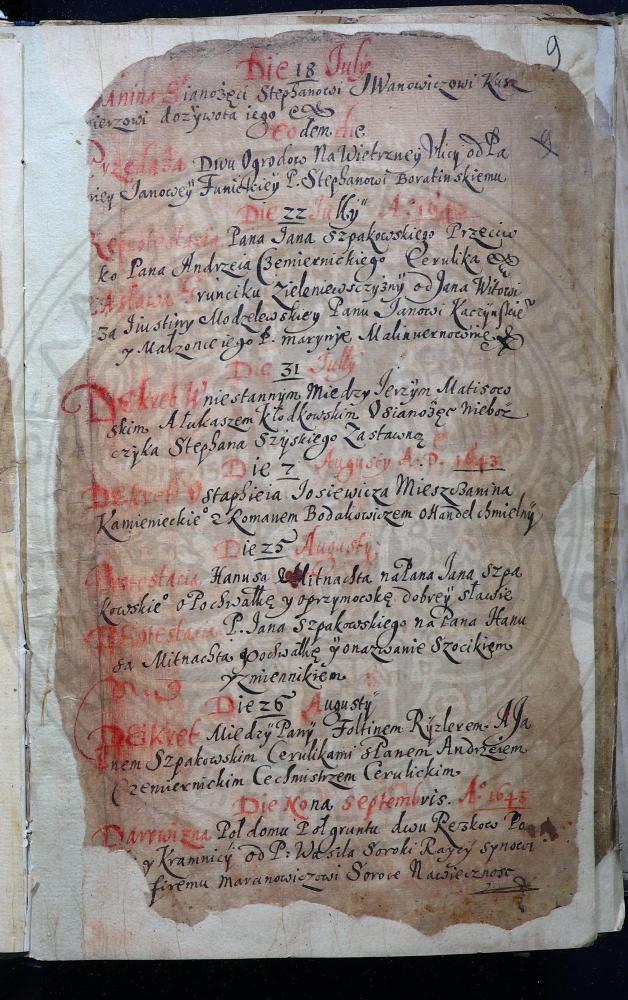 9
Die 18 July
Sianożęci Stephanowi IWanowiczowi Kusz
nierzowi dozywota iego
Eodem die
Przedaża Dwu Ogrodow Na Wietrzney Vlicy od Pa
niey Janowey Funickiey P. Stephanowi Boratinskiemu
Die 22 July A° 1643
Reprotestatia Pana Jana Szpakowskiego Przeciw
ko Pana Andrzeia Czemiernickiego Cerulika
Grunciku Zieleniewsczyżny od Jana Witowi
za Iustiny Modzelewskiey Panu Janowi Kaczynskie
y Małzonce iego P. marynie
Die 31 July
Dekret W niestannym Miedzy Jerzym Matisow
skim A Łukaszem Kłodkowskim O Sianożęc Niebosz
czyka Stephana Szyskiego Zastawną
Die 7 Augusty A. D. 1643
Dekret Ostaphieia Josiewicza Mieszczanina
Kamienieckie° z Romanem Bodakowiczem o Handel chmielny
Die 25 Augusty
Protestacia Hanusa Mitnachta na Pana Jana Szpa
kowskie° o Pochwałkę y oprzymowkę dobrey sławie
Protestacia P. Jana Szpakowskiego na Pana Hanu
sa Mitnachta Pochwałkę y onazwanie Szocikiem
y Zmiennikiem
Die 26 Augusty
Dekret Między Pany Foltinem Ryzlerem A Ja
nem Szpakowskim Cerulikami s Panem Andrzeiem
Czemiernickim Cechmistrzem Cerulickim
Die Nona Septembris A° 1643
Darowizna Poł domu Poł gruntu dwu Rezkow Po
y Kramnicy od P: Wasila Soroki Raycy synowi
firemu Marcinowiczowi Soroce Nawiecznosc